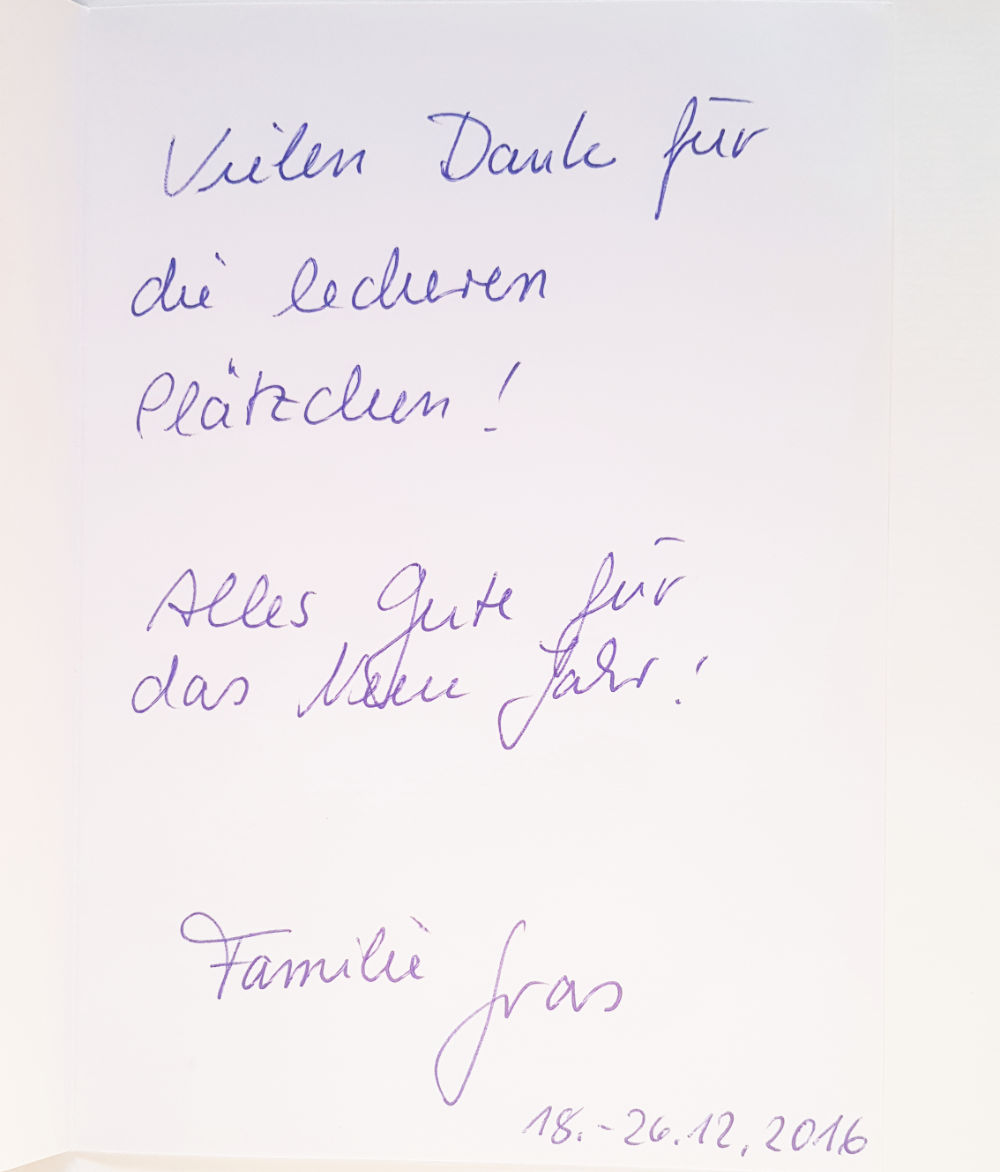 Vielen Dank für
die leckeren
Plätzchen!
Alles Gute für
das Neue Jahr!
Familie Gras
18.-26.12.2016